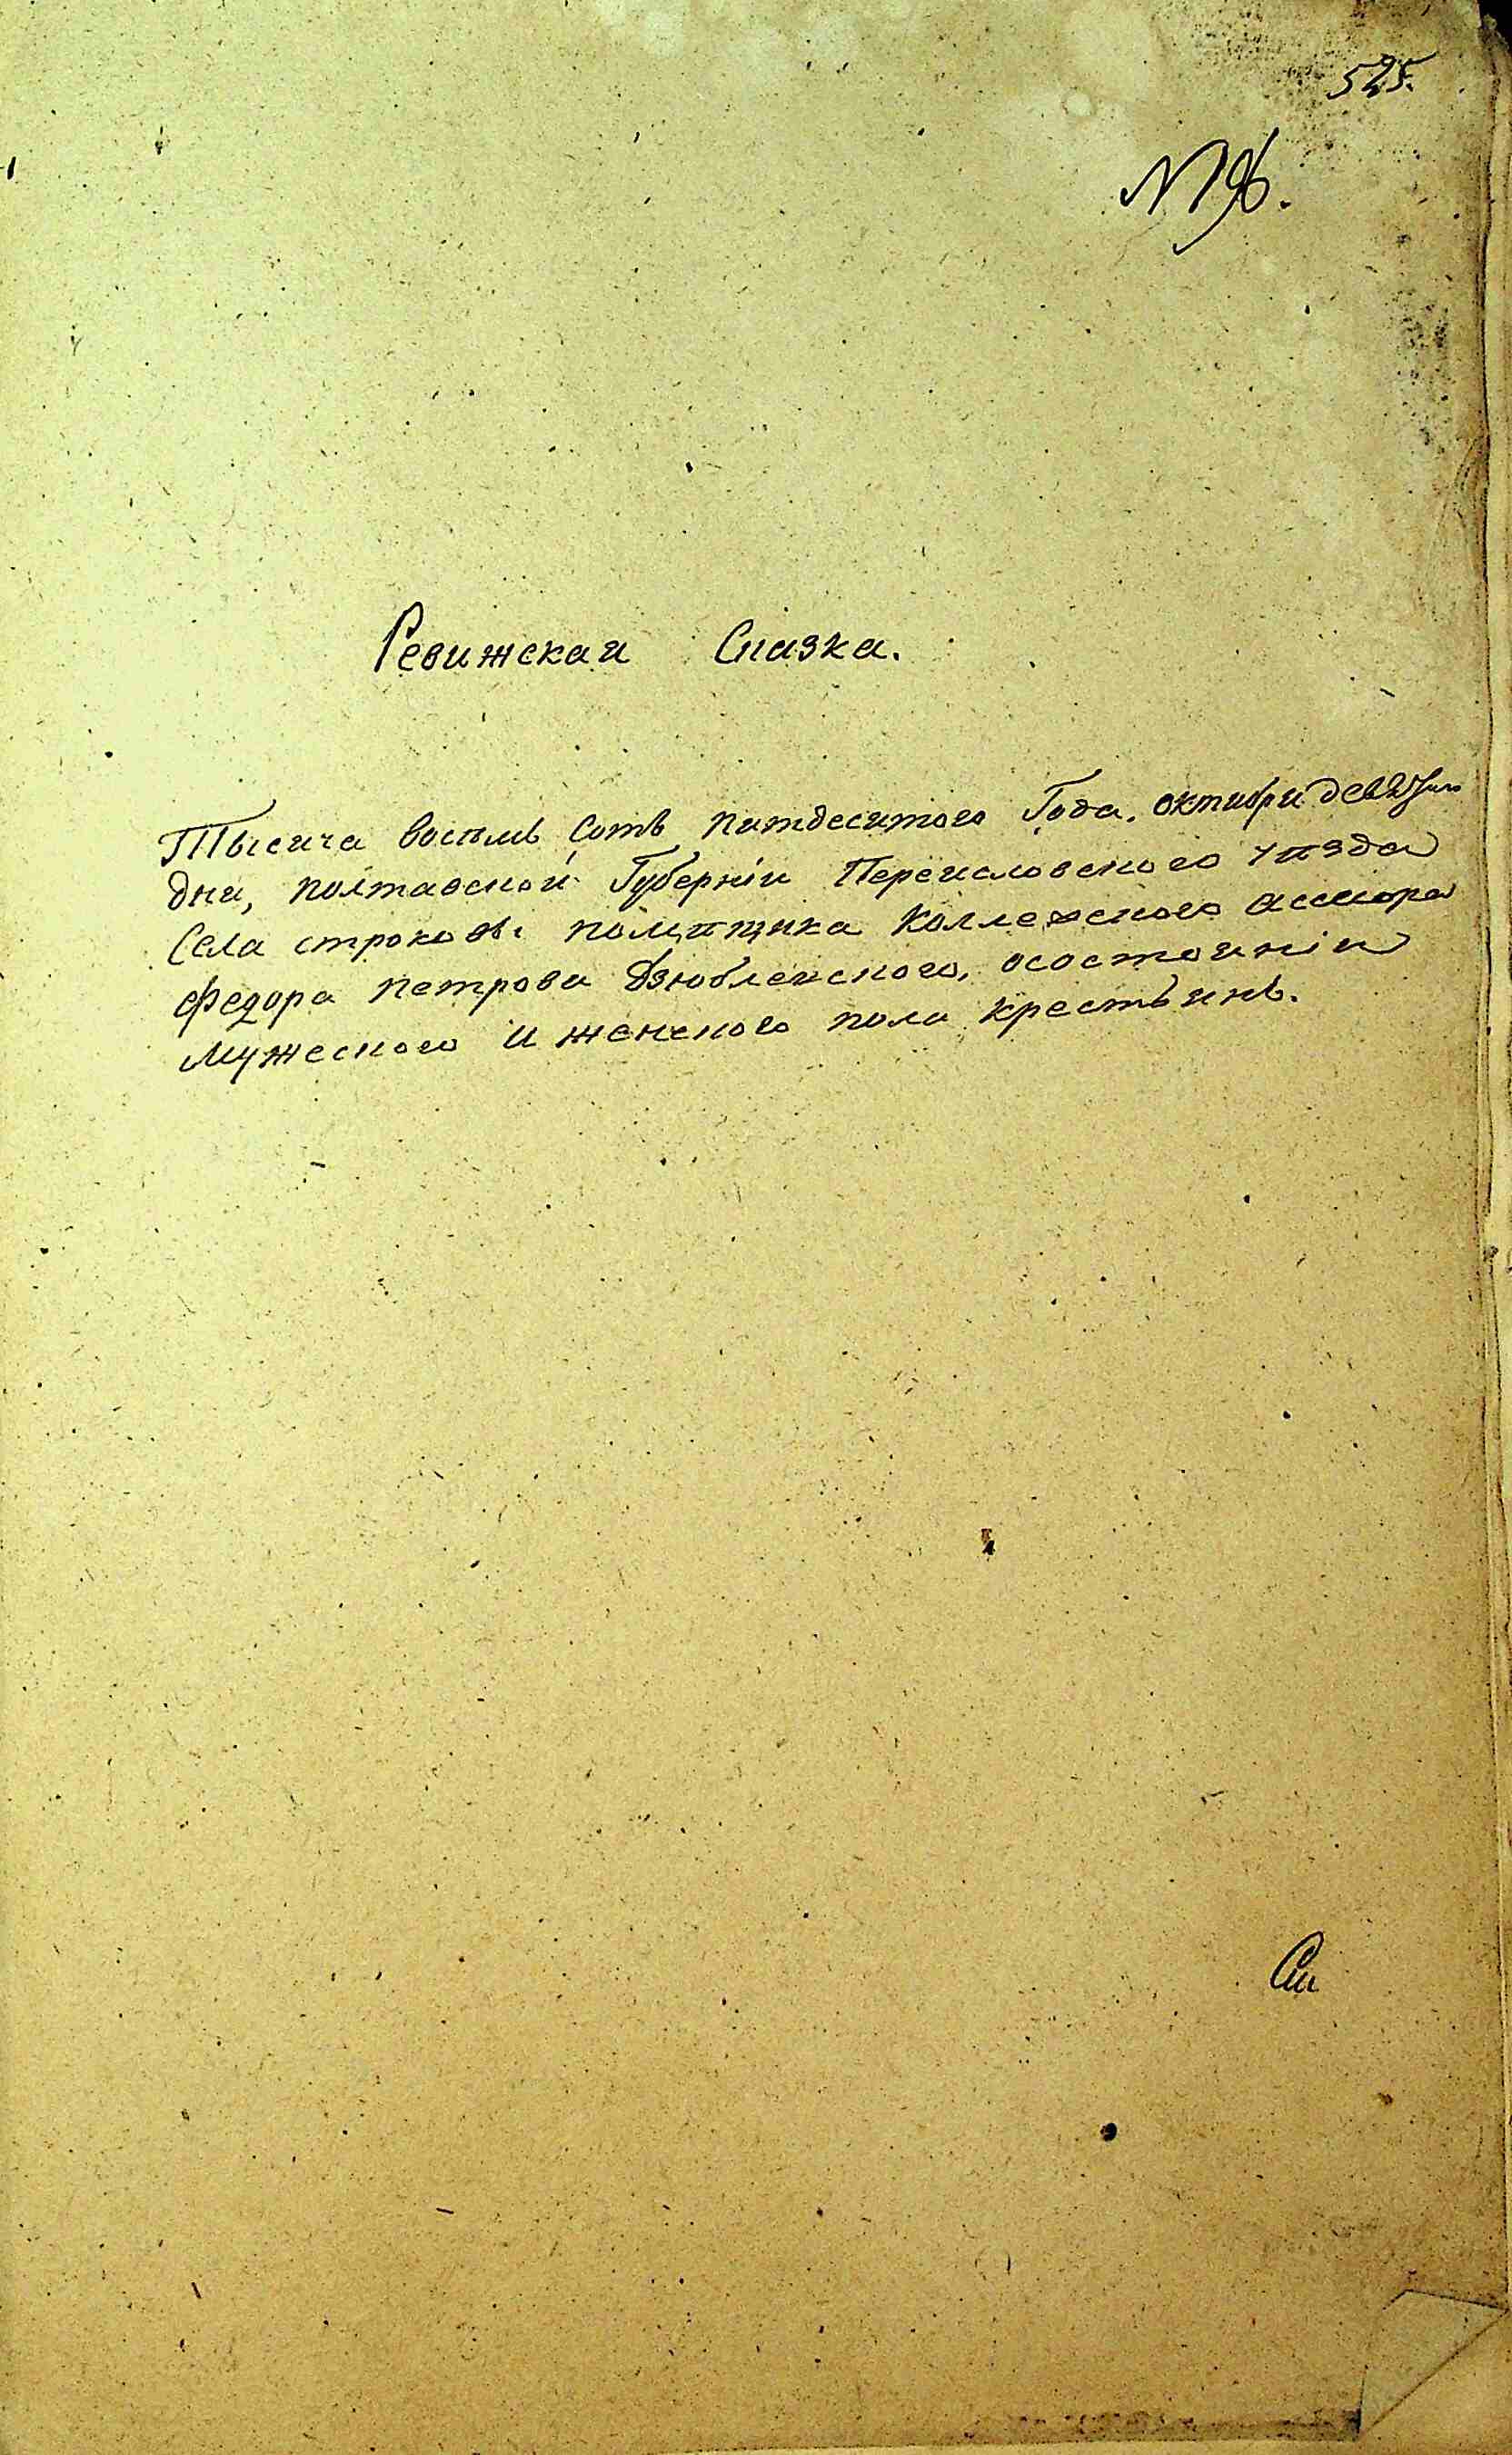 525.
№ 96.
Ревижская Сказка.
Тысяча восемь сотъ пятдесятого Года. октября
дня, полтавской Губерніи Переясловского уѣзда
Села строковъ помѣщика Коллежского ассесора
Федора петрова Дзюблевского, осостояніи
мужеского и женского пола крестьянъ.